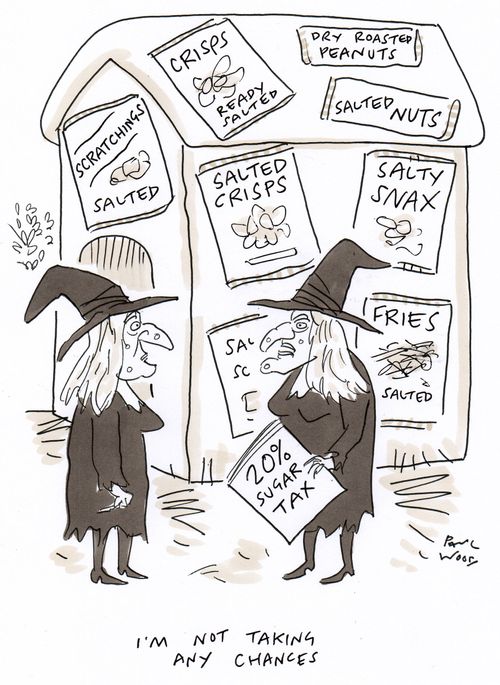 CRISPS
READY
SALTED
DRY ROASTED
PEANUTS
SALTED NUTS
SCRATCHINGS
SALTED
SALTED
CRISPS
SALTY
SNAX
FRIES
SALTED
SAL
SC
20%
SUGAR
TAX
PAUL
WOOD
I'M NOT TAKING
ANY CHANCES